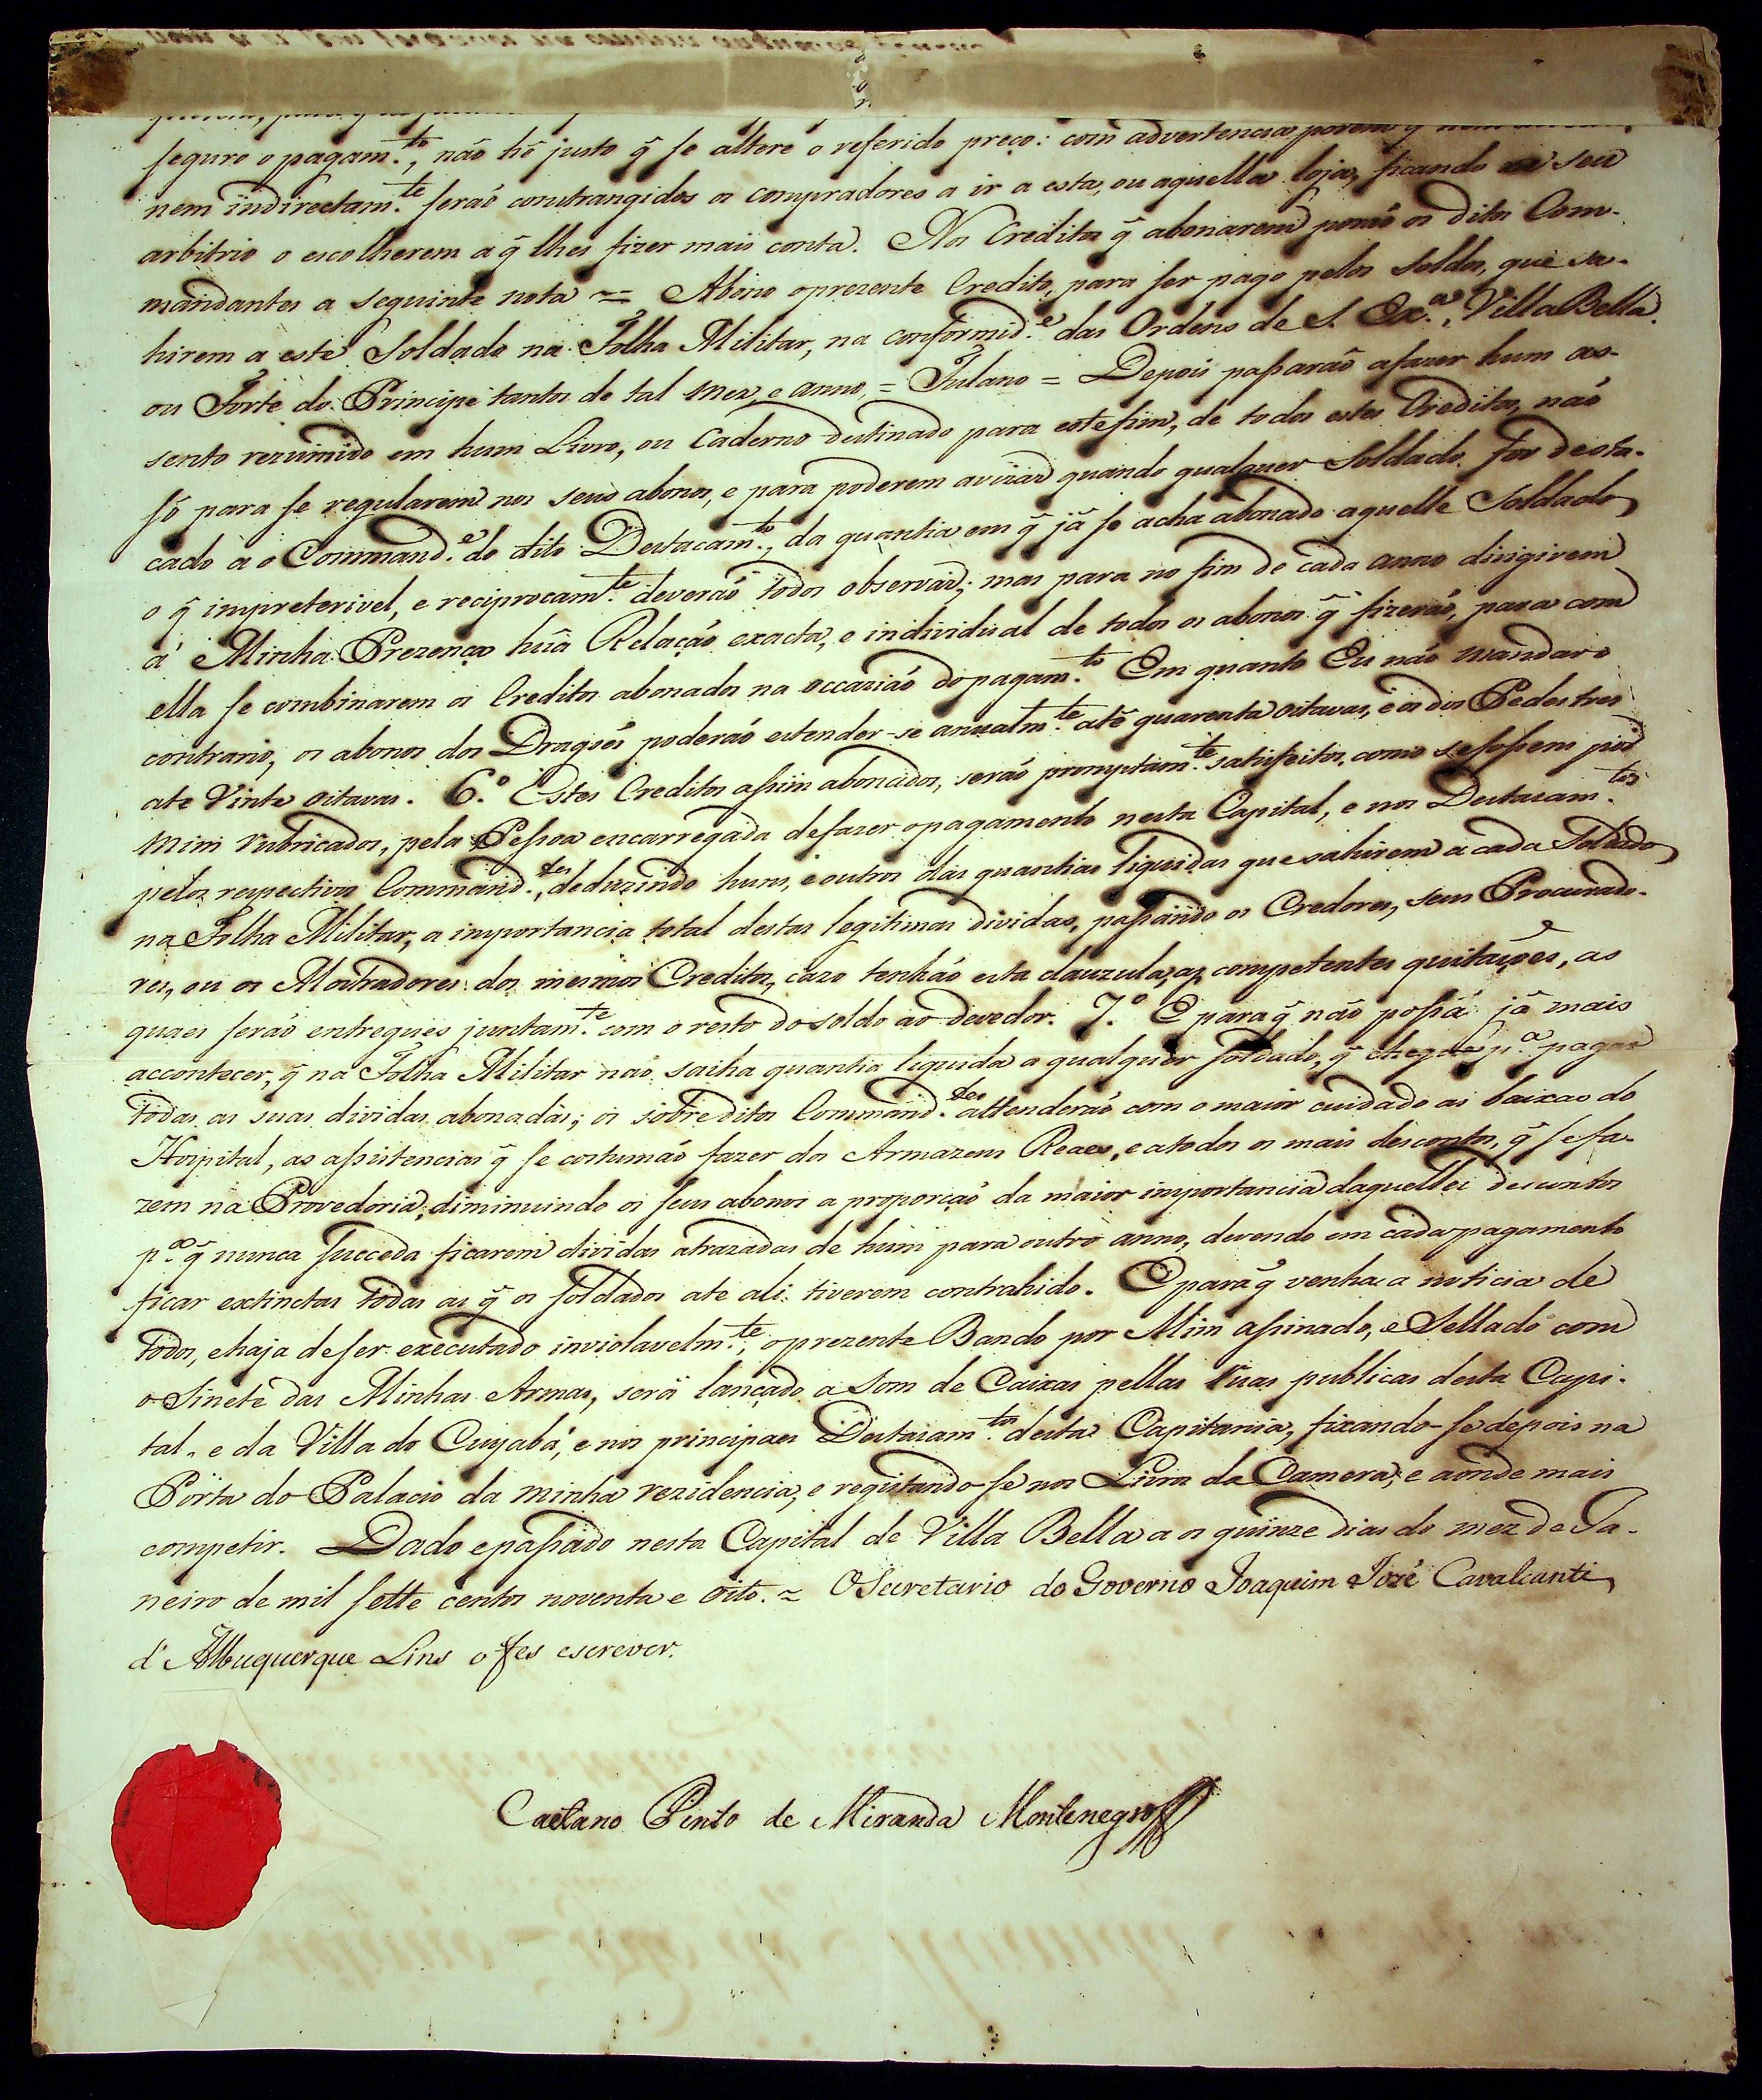 seguro o pagam.to, não hé justo q̃ se altere o referido preço: com advertencia porem q̃ nem
nem indirectam.te seraó constrangidos os compradores a ir a esta, ou aquella loja, ficando a seu
arbitrio o escolherem a q̃ lhes fizer mais conta. Nos Creditos q̃ abonarem poraó os ditos Com-
mandantes a seguinte nota = Abono o prezente Credito, para ser pago pelos soldos, que sa-
hirem a este Soldado na Folha Militar, na conformid.e das Ordens de S. Ex.a, Villa Bella.
ou Forte do Principe tantos de tal mez, e anno, = Fulano = Depois passaraõ a fazer hum as-
sento rezumido em hum Livro, ou Caderno destinado para este fim, de todos estes Creditos, naó
só para se regularem nos seus abonos, e para poderem avizar quando qualquer Soldado for desta-
cado a o Command.e do dito Destacam.to, da quantia em q̃ já se acha abonado aquelle Soldado,
o q̃ impreterivel, e reciprocam.te deveraó todos observar; mas para no fim de cada anno dirigirem
á Minha Prezença huã Relaçaó exacta, e individual de todos os abonos q̃ fizeraó, para com
ella se combinarem os Creditos abonados na occaziaó do pagam.to Em quanto Eu naó mandar o
contrario, os abonos dos Dragoés poderaó estender-se anualm.te até quarenta oitavas, e os dos Pedestres
ate vinte oitavas. 6.o Estes Creditos assim abonados, seraó promptam.te satisfeitos, como se fossem por
Mim rubricados, pela Pessoa encarregada de fazer o pagamento nesta Capital, e nos Destacam.tos
pelos respectivos Command.tes, deduzindo huns, e outros das quantias liquidas que sahirem a cada Soldado
na Folha Militar, a importancia total destas legitimas dividas, passando os Credores, seus Procurado-
res, ou os Mostradores dos mesmos Creditos, cazo tenhaó esta clauzula, as competentes quitaçoẽs, as
quaes seraó entregues juntam.te com o resto do soldo ao devedor. 7.o E para q̃ naó possa já mais
accontecer, q̃ na Folha Militar naó saiha quantia liquida a qualquer soldado, q̃ chegue p.a pagar
todas as suas dividas abonadas; os sobreditos Command.tes attenderaó com o maior cuidado as baixas do
Hospital, as assistencias q̃ se costumaó fazer dos Armazens Reaes, e a todos os mais descontos, q̃ se fa-
zem na Provedoria, diminuindo os seus abonos a proporçaó da maior importancia daquelles descontos
p.a q̃ nunca succeda ficarem dividas atrazadas de hum para outro anno, devendo em cada pagamento
ficar extinctas todas as q̃ os soldados ate ali tiverem contrahido. E para q̃ venha a noticia de
todos, e haja de ser executado inviolavelm.te, o prezente Bando por Mim assinado, e Sellado com
o Sinete das Minhas Armas, será lançado a som de Caixas pellas ruas publicas desta Capi-
tal, e da Villa do Cuyabá, e nos principaes Destacam.tos desta Capitania, fixando-se depois na
Porta do Palacio da minha rezidencia, e registando-se nos Livros da Camera, e aonde mais
competir. Dado e passado nesta Capital de Villa Bella a os quinze dias do mez de Ja-
neiro de mil sette centos noventa e oito. = O Secretario do Governo Joaquim Jozé Cavalcanti
d'Albuquerque Lins o fes escrever.
Caetano Pinto de Miranda Montenegro